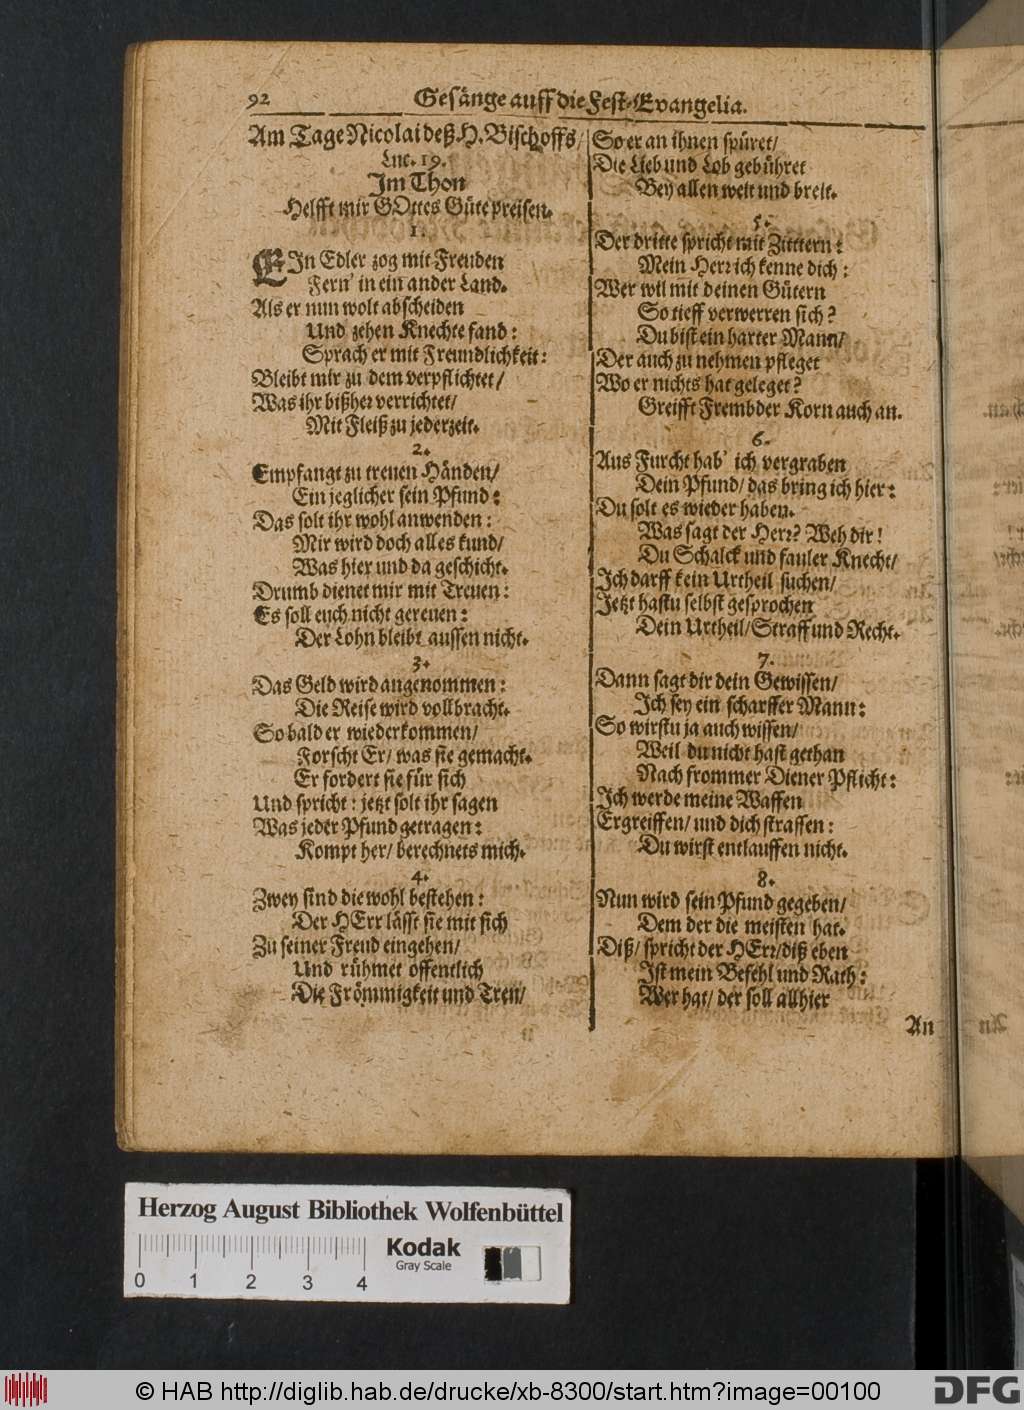 92 Gesänge auff die Fest-Evangelia.
Am Tage Nicolai deß H. Bischoffs/
Luc. 19.
Im Thon
Helfft mir GOttes Güte preisen.
1.
EIn Edler zog mit Freuden
Fern' in ein ander Land.
Als er nun wolt abscheiden
Und zehen Knechte fand:
Sprach er mit Freundlichkeit:
Bleibt mir zu dem verpflichtet/
Was ihr bißher verrichtet/
Mit Fleiß zu jederzeit.
2.
Empfangt zu treuen Händen/
Ein jeglicher sein Pfund:
Das solt ihr wohl anwenden:
Mir wird doch alles kund/
Was hier und da geschicht.
Drumb dienet mir mit Treuen:
Es soll euch nicht gereuen:
Der Lohn bleibt aussen nicht.
3.
Das Geld wird angenommen:
Die Reise wird vollbracht.
So bald er wiederkommen/
Forscht Er/ was sie gemacht.
Er fordert sie für sich
Und spricht: jetzt solt ihr sagen
Was jeder Pfund getragen:
Kompt her/ berechnets mich.
4.
Zwey sind die wohl bestehen:
Der HErr lässt sie mit sich
Zu seiner Freud eingehen/
Und rühmet öffentlich
Die Frömmigkeit und Treu/
So er an ihnen spüret/
Die Lieb und Lob gebühret
Bey allen weit und breit.
5.
Der dritte spricht mit Zittern:
Mein Herr ich kenne dich:
Wer wil mit deinen Gütern
So tieff verwerren sich?
Du bist ein harter Mann/
Der auch zu nehmen pfleget
Wo er nichts hat geleget?
Greifft Frembder Korn auch an.
6.
Aus Furcht hab' ich vergraben
Dein Pfund/ das bring ich hier:
Du solt es wieder haben.
Was sagt der Herr? Weh dir!
Du Schalck und fauler Knecht/
Ich darff kein Urtheil suchen/
Jetzt hastu selbst gesprochen
Dein Urtheil/ Straff und Recht.
7.
Dann sagt dir dein Gewissen/
Ich sey ein scharffer Mann:
So wirstu ja auch wissen/
Weil du nicht hast gethan
Nach frommer Diener Pflicht:
Ich werde meine Waffen
Ergreiffen/ und dich straffen:
Du wirst entlauffen nicht.
8.
Nun wird sein Pfund gegeben/
Dem der die meisten hat.
Diß/ spricht der HErr/ diß eben
Ist mein Befehl und Rath:
Wer hat/ der soll allhier
An
Herzog August Bibliothek Wolfenbüttel
Kodak
Gray Scale
0 1 2 3 4
© HAB http://diglib.hab.de/drucke/xb-8300/start.htm?image=00100
DFG